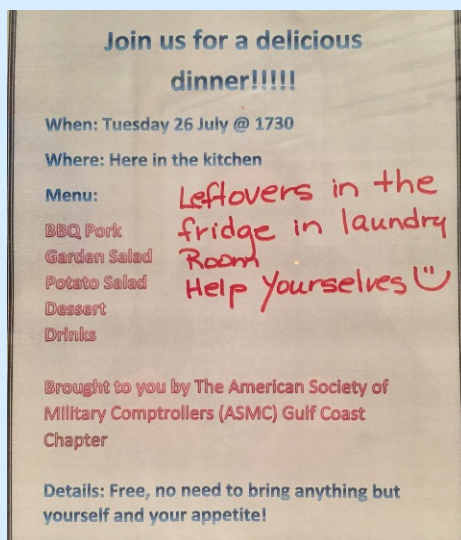 Join us for a delicious
dinner!!!!!
When: Tuesday 26 July @ 1730
Where: Here in the kitchen
Menu:
BBQ Pork
Garden Salad
Potato Salad
Dessert
Drinks
Leftovers in the
fridge in laundry
Room
Help Yourselves
Brought to you by The American Society of
Military Comptrollers (ASMC) Gulf Coast
Chapter
Details: Free, no need to bring anything but
yourself and your appetite!